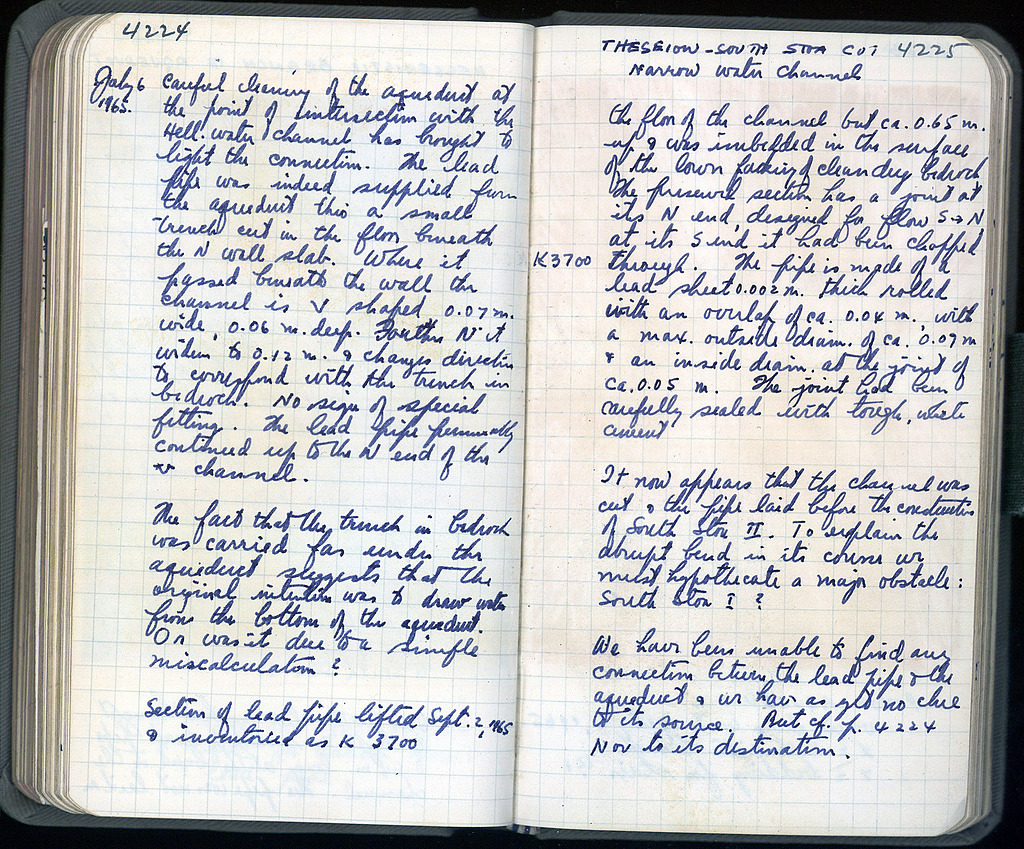 4224
July 6 careful cleaning of the aqueduct at
1965. the point of intersection with the
Hell. water channel has brought to
light the connection. The lead
pipe was indeed supplied from
the aqueduct thro a small
trench cut in the floor beneath
the N wall slab. Where it
passed beneath the wall the
channel is V shaped 0.07 m.
wide, 0.06 m. deep. Farther N it
widens to 0.12 m. & changes direction
to correspond with the trench in
bedrock. No sign of special
fitting. The lead pipe presumably
continued up to the N end of the
channel.
The fact that the trench in bedrock
was carried far under the
aqueduct suggests that the
original intention was to draw water
from the bottom of the aqueduct.
Or was it due to a simple
miscalculation?
Section of lead pipe lifted Sept. 2, 1965
& inventoried as K 3700
THESEION - SOUTH STOA CUT 4225
Narrow water channels
the floor of the channel but ca. 0.65 m.
up & was imbedded in the surface
of the brown packing of clean dug bedrock
The preserved section has a joint at
its N end, designed for flow S→N
at its S end it had been chopped
K 3700 through. The pipe is made of a
lead sheet 0.002 m. thick rolled
with an overlap of ca. 0.04 m., with
a max. outside diam. of ca. 0.07 m
& an inside diam. at the joint of
ca. 0.05 m. The joint had been
carefully sealed with tough, white
cement
It now appears that the channel was
cut & the pipe laid before the construction
of South Stoa II. To explain the
abrupt bend in its course we
must hypothecate a major obstacle:
South Stoa I ?
We have been unable to find any
connection between the lead pipe & the
aqueduct & we have as yet no clue
to its source. But cf. p. 4224
Nor to its destination.